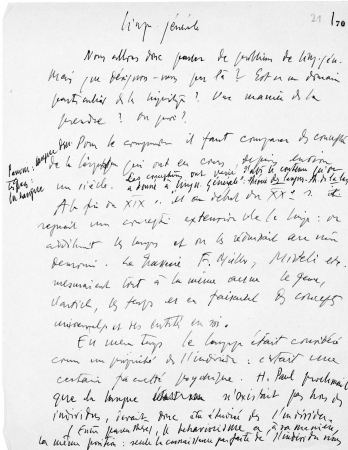 ling. générale
21/70
Nous allons donc parler de problèmes de ling. gén.
Mais que désignons-nous par là ? Est-ce un domaine
particulier de la linguistique ? Une manière de la
prendre ? Ou quoi ?
Pour le comprendre il faut comparer des conceptions
de la linguistique qui ont eu cours depuis environ
un siècle. les conceptions ont varié d'après le contenu qu'on
a donné à ling. Générale.
la langue
A la fin du XIX s. et au début du XXe s.
régnait une conception extensive de la ling : on
additionnait les langues et on les réduisait au même
La Grasserie F. Müller, Misteli etc.
mesuraient tout à la même aune le genre,
l'article, les temps et en faisaient des concepts
universels et des entités en soi.
En même temps le langage était considéré
comme une propriété de l'individu : c'était une
certaine faculté psychique. H. Paul proclamait
que la langue n'existant pas hors des
individus, devait donc être étudiée de l'individu.
(Entre parenthèses, le behaviorisme a, à sa manière,
la même position : seule la connaissance parfaite de l'individu